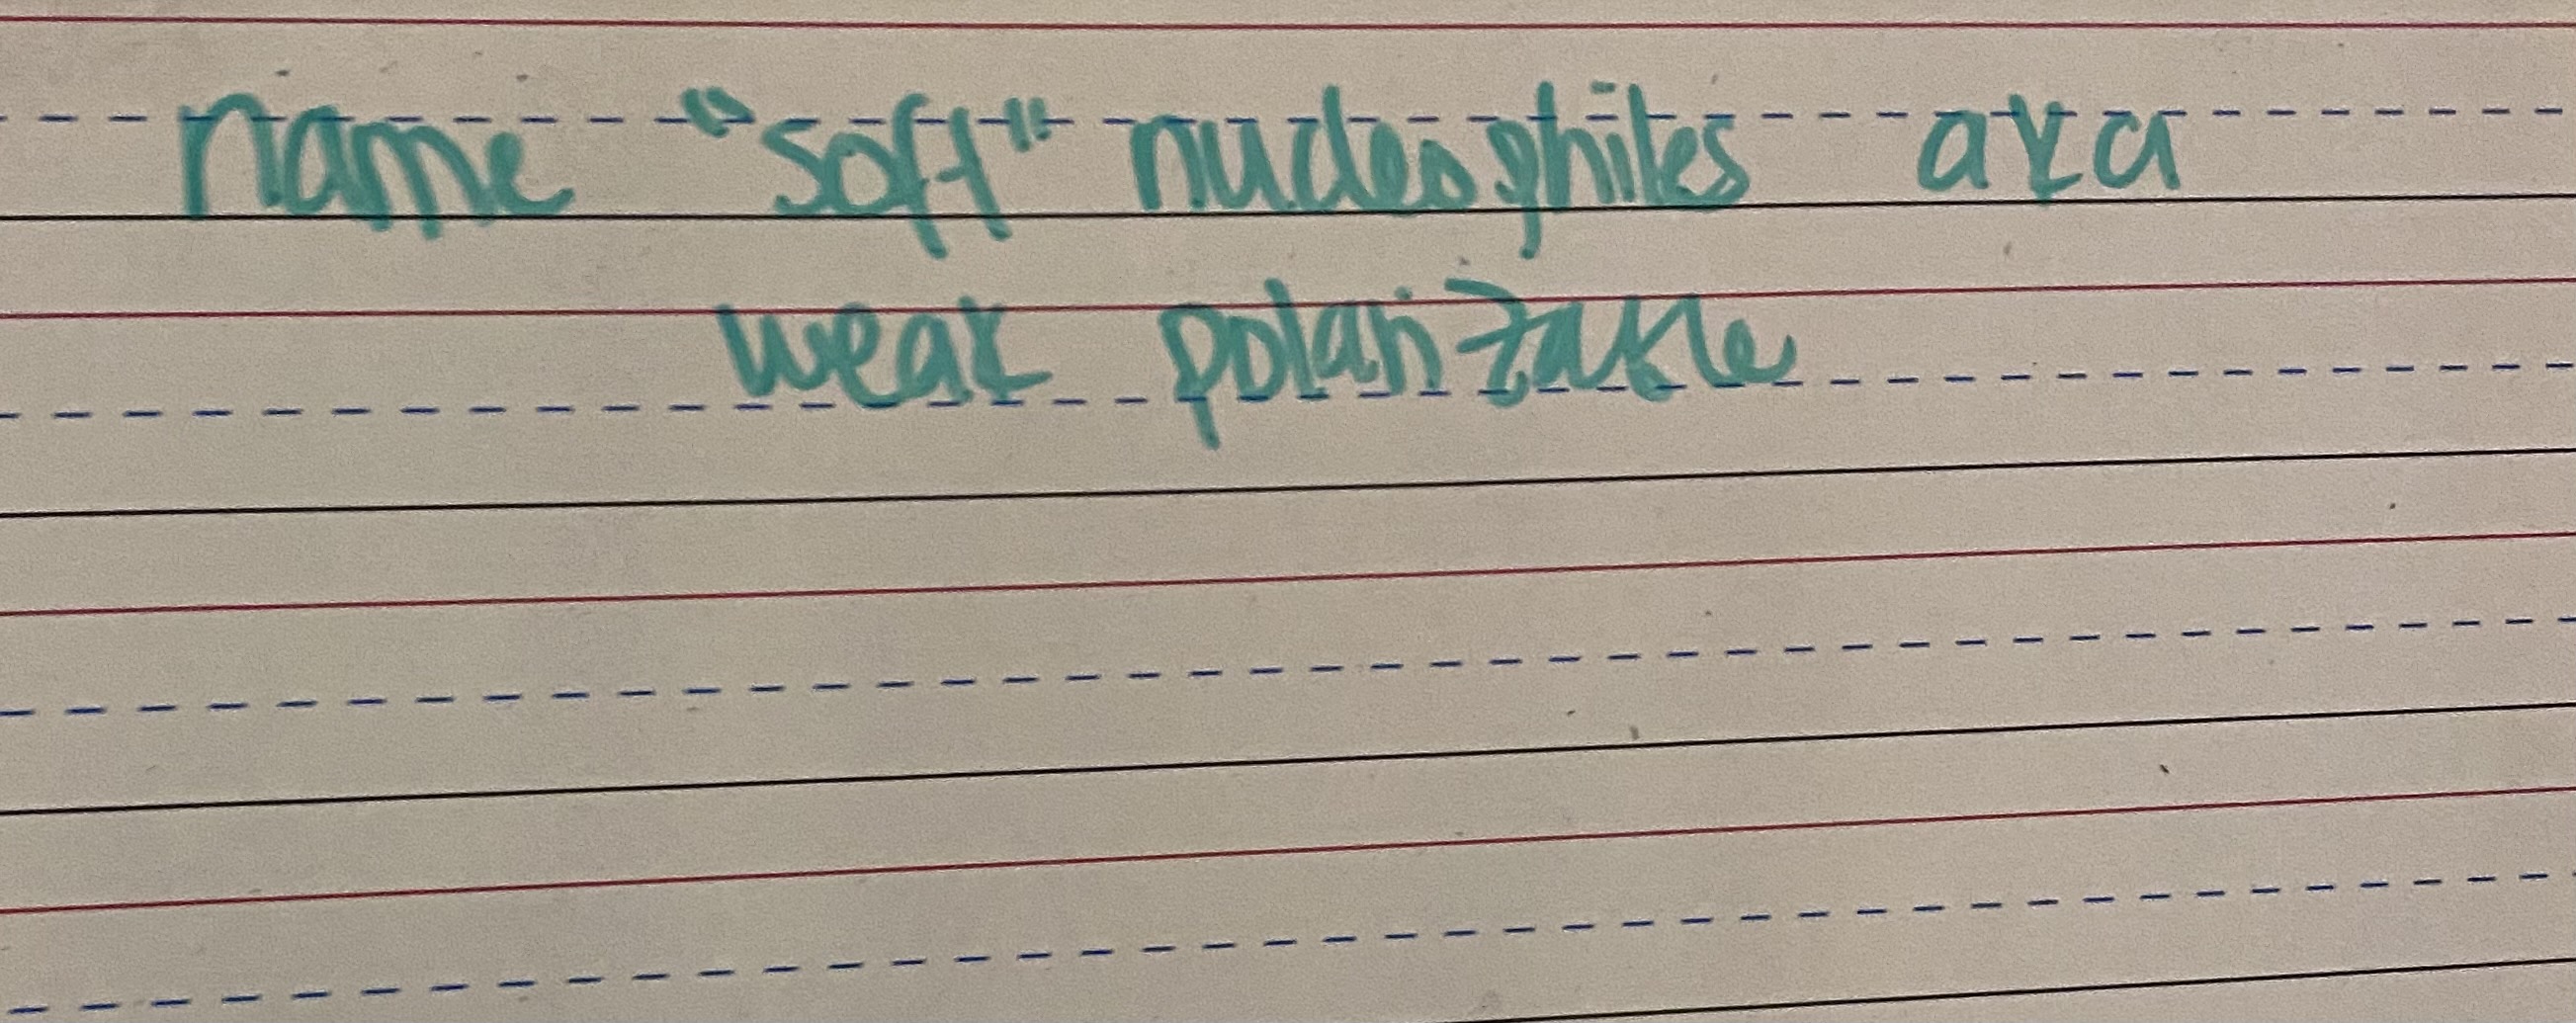 name "soft" nucleophiles aka
weak polarizable